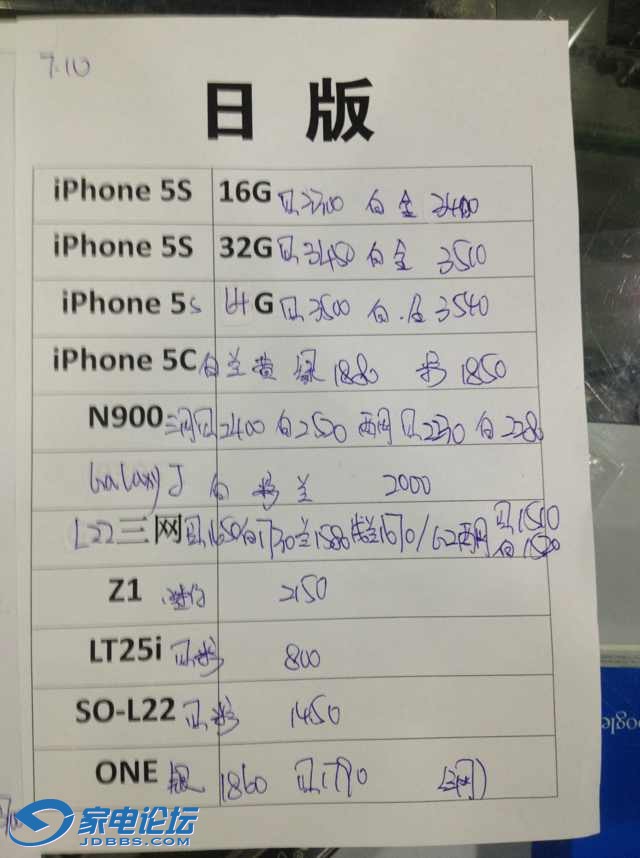 7.10
日 版
iPhone 5S 16G 白 金 3400
iPhone 5S 32G 3450 白 金 3510
iPhone 5s G 3500 白 金 3540
iPhone 5C 白 兰 黄 绿 1880 粉 1850
N900 三网 2400 白 2520 两网 2230 白 2280
Galaxy J 白 粉 兰 2000
L22 三网 1650 白1730 兰1580 1670/ 两网 1510
白 1520
Z1 迷你 2150
LT25i 粉 800
SO-L22 粉 1450
ONE 银 1860 1790 (三网)
家电论坛
JDBBS.COM